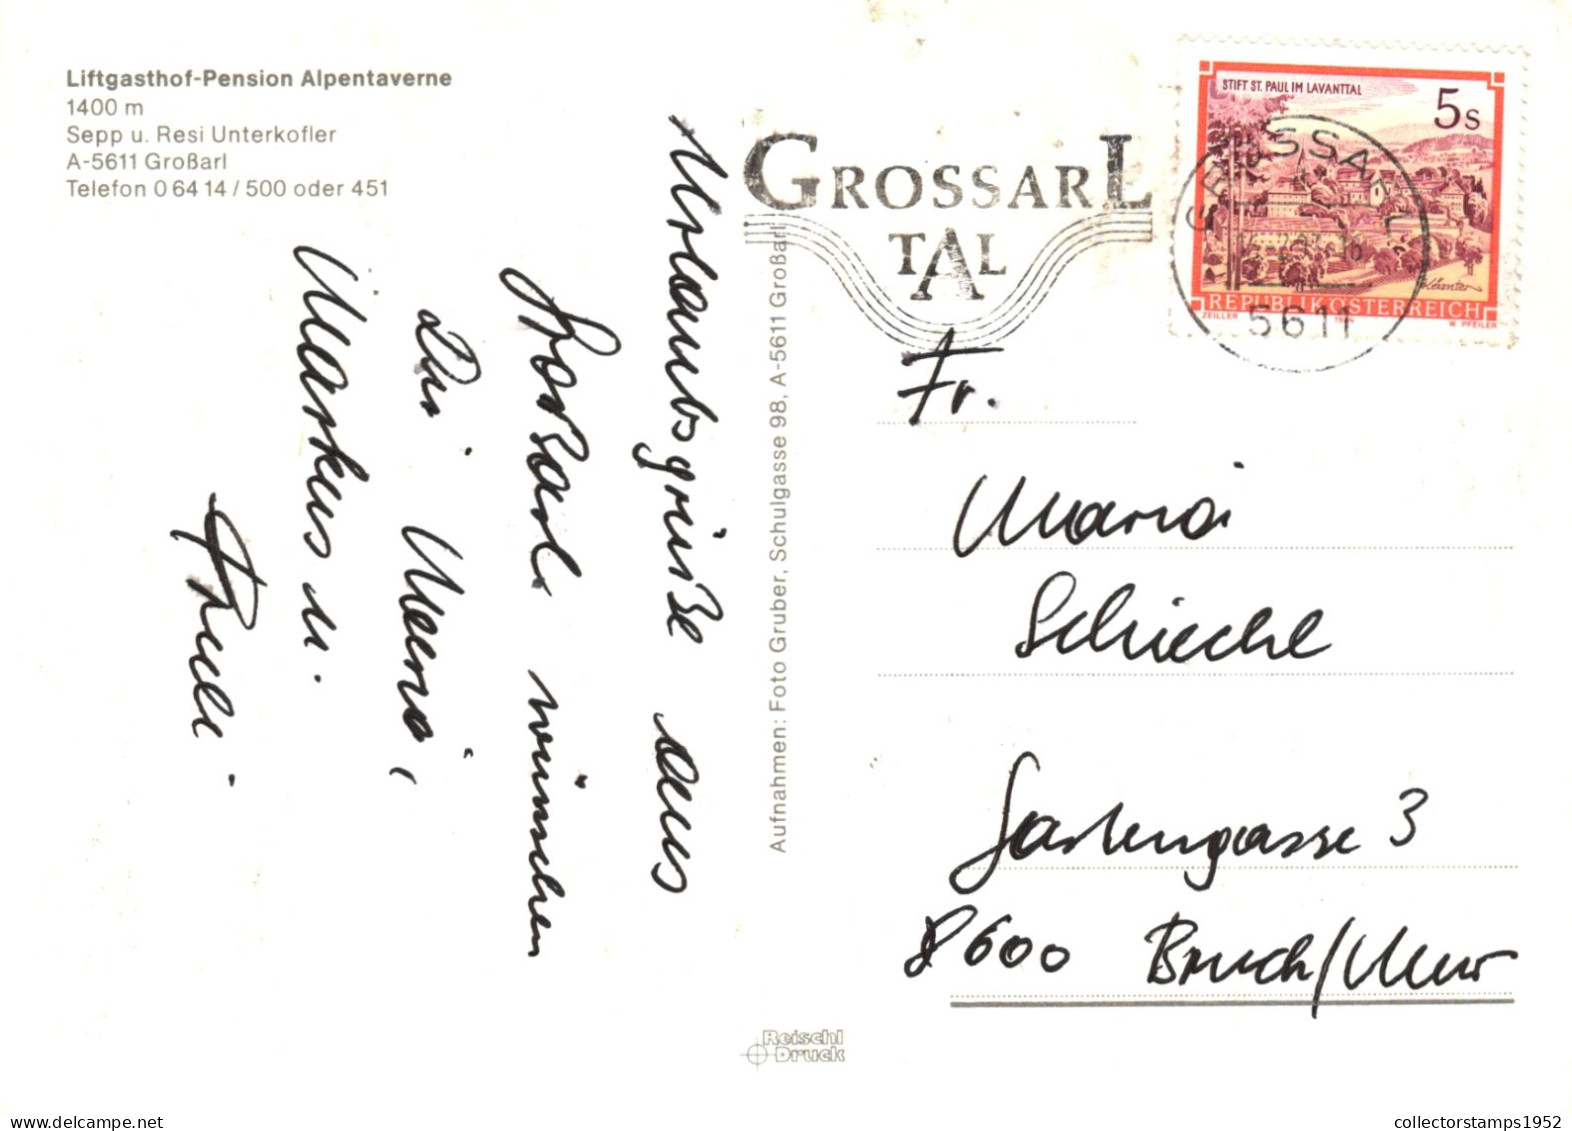 Liftgasthof-Pension Alpentaverne
1400 m
Sepp u. Resi Unterkofler
A-5611 Großarl
Telefon 0 64 14 / 500 oder 451
Urlaubsgrüße aus
Großarl wünschen
Markus u.
Aufnahmen: Foto Gruber, Schulgasse 98, A-5611 Großarl
GROSSARL
TAL
STIFT ST. PAUL IM LAVANTTAL
5 S
REPUBLIK ÖSTERREICH
ZEILLER
W. PFEILER
GROSSARL
5611
Fr.
Maria
Schiechl
Gartengasse 3
8600 Bruck/Mur
Reischl
Druck
collectorstamps1952